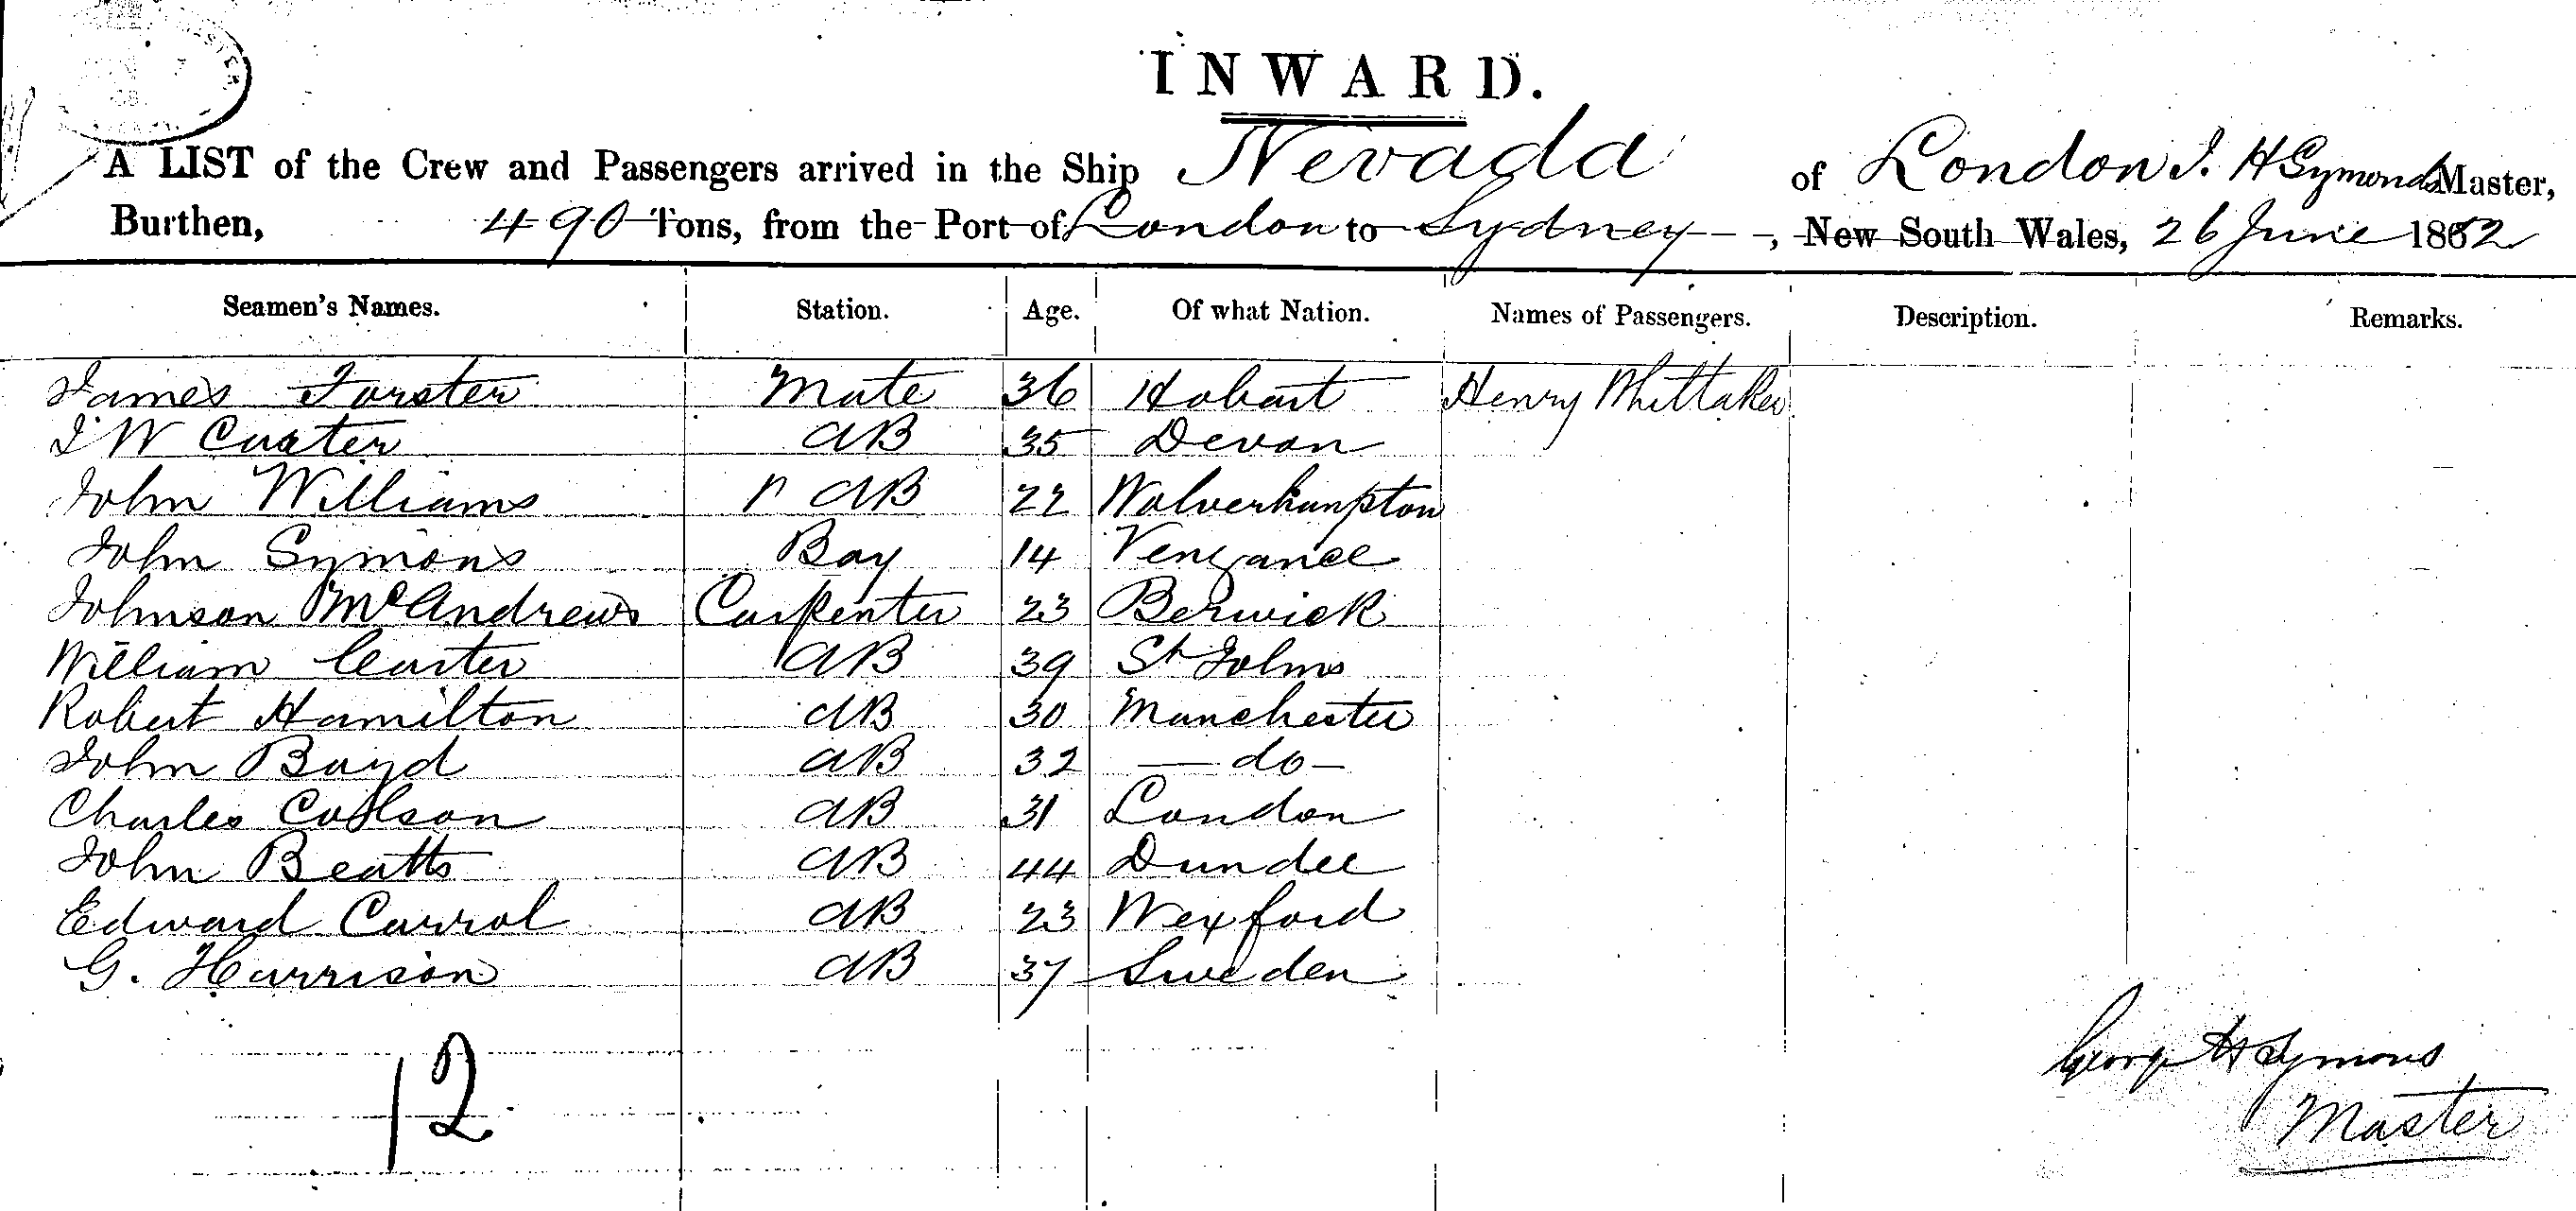 INWARD.
A LIST of the Crew and Passengers arrived in the Ship Nevada of London J. H Symonds Master,
Burthen, 490 Tons, from the Port of London to Sydney, New South Wales, 26 June 1862
Seamen's Names. Station. Age. Of what Nation. Names of Passengers. Description. Remarks.
James Forster Mate 36 Hobart Henry Whittaker
J W Carter AB 35 Devon
John Williams " AB 22 Wolverhampton
John Symons Boy 14 Vengance
Johnson McAndrews Carpenter 23 Berwick
William Carter AB 39 St Johns
Robert Hamilton AB 30 Manchester
John Boyd AB 32 — do —
Charles Colson AB 31 London
John Beatts AB 44 Dundee
Edward Carrol AB 23 Wexford
G. Harrison AB 37 Sweden
12
George H Symons
Master